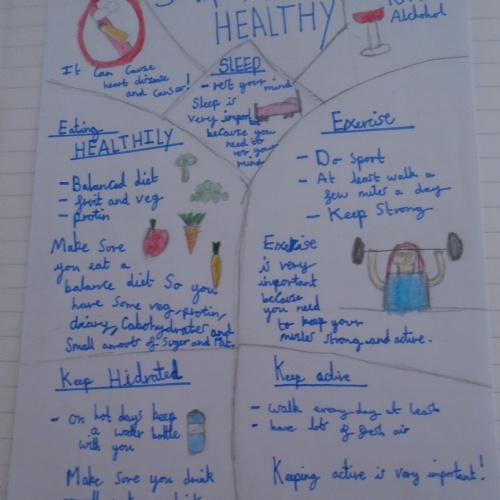 HEALTHY
Alchohol
It can cause
heart disease
and cancer!
SLEEP
- rest your mind
Sleep is
very important
because you
need to
rest your
mind
Eating
HEALTHILY
- Balanced diet
- fruit and veg
- protin
Make sure
you eat a
balance diet so you
have some veg, protin,
diary, Cabohydrates and
Small amorts of Suger and Fat.
Exercise
- Do sport
- At least walk a
few miles a day
- Keep Strong
Exercise
is very
important
because
you need
to keep your
musles strong and active.
Keep Hidrated
- on hot days keep
a water bottle
with you
Make sure you drink
Keep active
- walk everyday at least
- have lots of fresh air
Keeping active is very important!